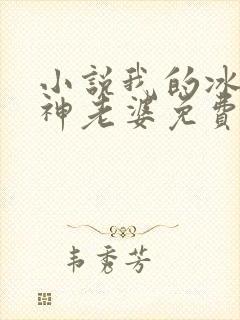 小説我的冰
神老婆免費
韦秀芳